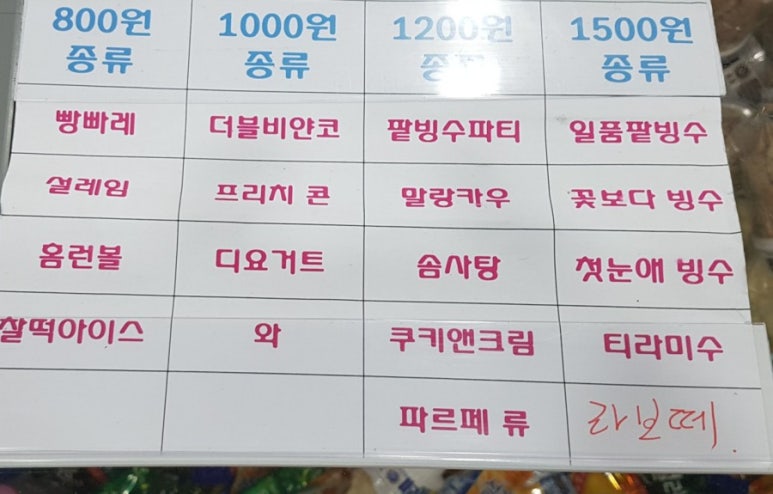 800원 1000원 1200원 1500원
종류 종류 종류 종류
빵빠레 더블비얀코 팥빙수파티 일품팥빙수
설레임 프리치 콘 말랑카우 꽃보다 빙수
홈런볼 디요거트 솜사탕 첫눈애 빙수
찰떡아이스 와 쿠키앤크림 티라미수
파르페 류 라보떼